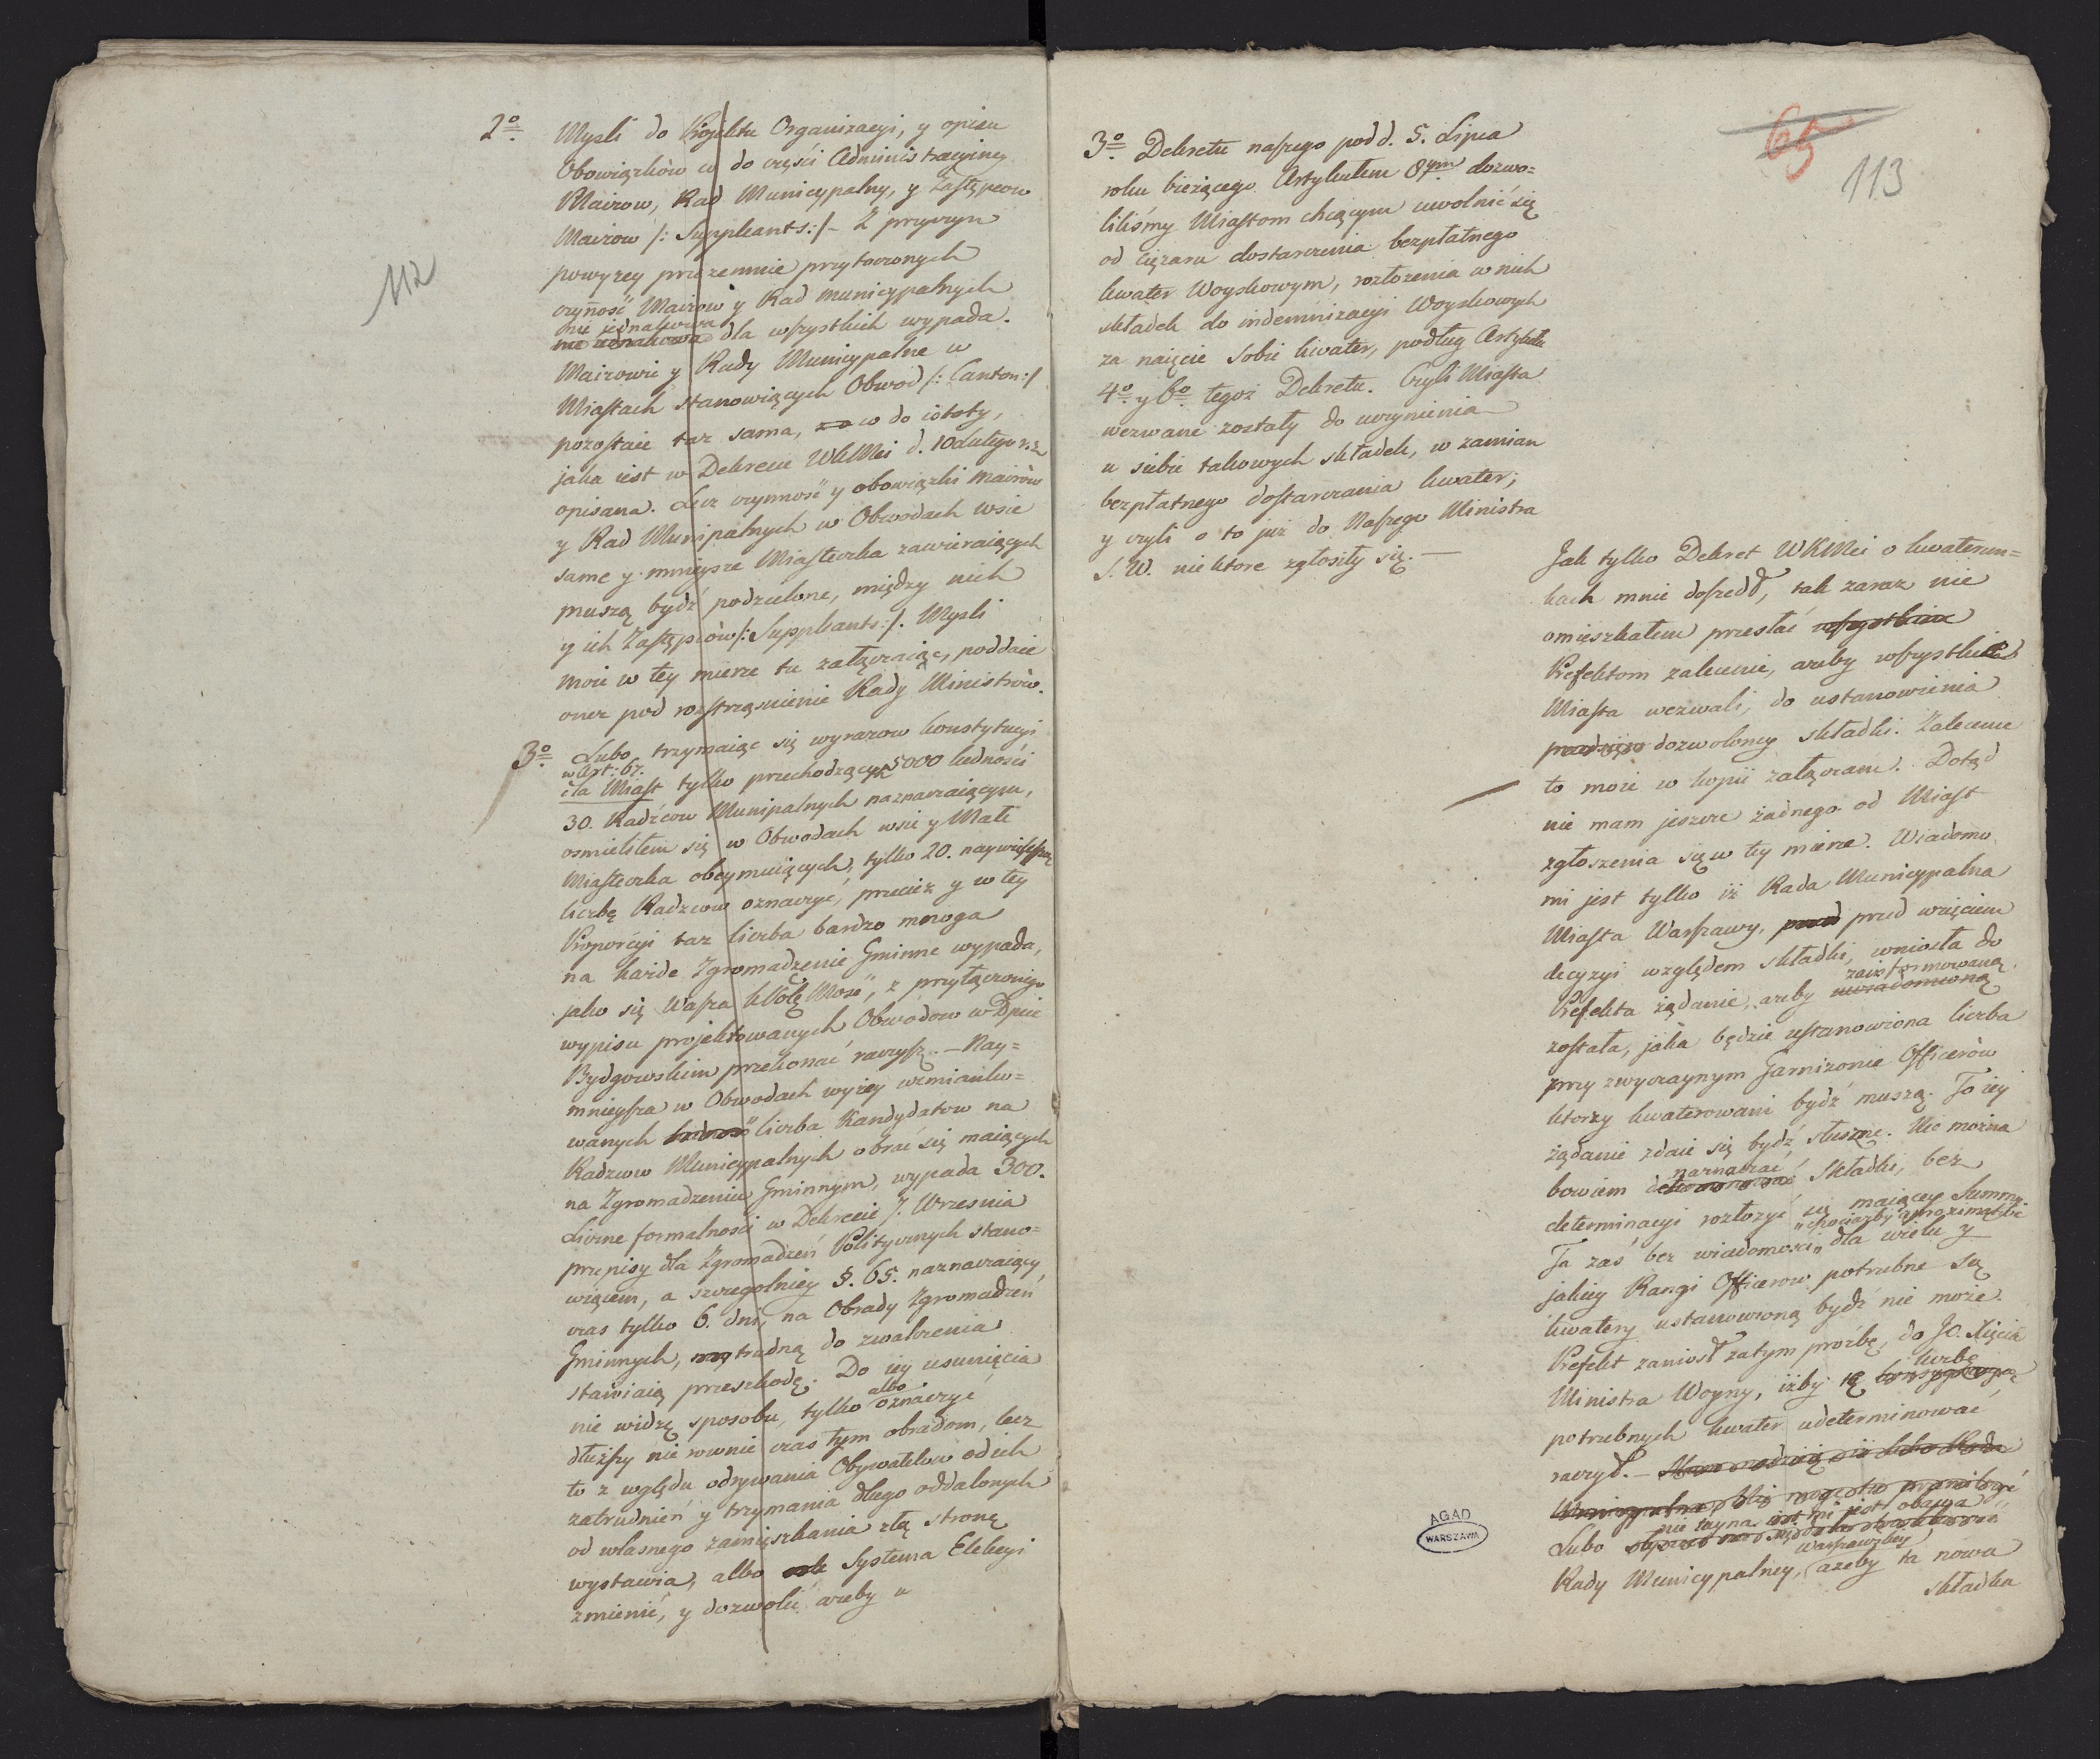 112
2o Mysli do Projektu Organizacyi, y opisu
Obowiązków co do części Administracyiney
Mairow, Rad Municypalny, y Zastępcow
Mairow /: Suppleants :/ – Z przyczyn
powyzey przezemnie przytoczonych
czyność Mairow y Rad Municypalnych
nie jednakowa
nie jednakowa dla wszystkich wypada.
Mairowie y Rady Municypalne w
Miastach stanowiących Obwod /: Canton :/
pozostaie taz sama, co do istoty,
jaka iest w Dekrecie WKMci d. 10 Lutego r. z.
opisana. Lecz czynność y obowiązki Mairów
y Rad Municipalnych w Obwodach wsie
same y mnieysze Miasteczka zawieraiących
muszą bydź podzielone, między nich
y ich Zastępców /: Suppleants :/. Mysli
moie w tey mierze tu załączaiąc, poddaie
onez pod rozstrząsnienie Rady Ministrów.
3o Lubo, trzymaiąc się wyrazow konstytucyi
w Art: 67.
dla Miast tylko przechodzących 5000 ludności
30. Radźcow Municipalnych naznaczaiącym,
osmieliłem się w Obwodach wsie y Małe
Miasteczka obeymuiących, tylko 20. naywiększą
liczbę Radzcow oznaczyć, przeciez y w tey
Proporcyi taz liczba bardzo mnoga
na każde Zgromadzenie Gminne wypada,
jako się Wasza Mość, z przyłączonego
wypisu projektowanych Obwodow w Dpcie
Bydgowskim przekonać raczysz. – Nay=
mnieysza w Obwodach wyżey wzmianko=
wanych liczba Kandydatow na
Radzcow Municypalnych obrać się maiących
na Zgromadzeniu Gminnym, wypada 300.
Liczne formalności w Dekrecie 7. Wrzesnia
przepisy dla Zgromadzeń Politycznych stano=
wiącem, a szczegolniey §. 65. naznaczaiący
czas tylko 6. dni, na Obrady Zgromadzeń
Gminnych, trudną do zwalczenia
stawiaią przeszkodę. Do iey usunięcia
nie widzę sposobu, tylko albo oznaczyć
dłuższy nie rownie czas tym obradom, lecz
to z względu odrywania Obywatelow od ich
zatrudnień y trzymania długo oddalonych
od własnego zamięszkania złą stronę
wystawia, albo Systema Elekcyi
zmienić, y dozwolić azeby u
65
113
3o Dekretu naszego pod d. 5. Lipca
roku bieżącego Artykułem 8ym dozwo=
liliśmy Miastom chcącym uwolnić się
od ciężaru dostarczenia bezpłatnego
kwater Woyskowym, rozłożenia w nich
składek do indemnizacyi Woyskowych
za naięcie sobie kwater, podług Artykułu
4o y 6o tegoż Dekretu. Czyli Miasta
wezwane zostały do uczynienia
u siebie takowych składek, w zamian
bezpłatnego dostarczania kwater;
y czyli o to już do Naszego Ministra
S. W. niektore zgłosiły się. –
Jak tylko Dekret WKMci o kwaterun=
kach mnie doszedł, tak zaraz nie
omieszkałem przesłać wszystkim
Prefektom zalecenie, azeby wszystkie
Miasta wezwali, do ustanowienia
dozwoloney składki. Zalecenie
to moie w kopii załączam. Dotąd
nie mam jeszcze żadnego od Miast
zgłoszenia się w tey mierze. Wiadomo
mi jest tylko iż Rada Municypalna
Miasta Warszawy, przed wzięciem
decyzyi względem składki, wniosła do
Prefekta żądanie, azeby zainformowaną
uwiadomioną
została, jaka będzie ustanowiona liczba
przy zwyczaynym Garnizonie Officerów
ktorzy kwaterowani bydź muszą. To iey
żądanie zdaie się bydź słuszne. Nie można
bowiem naznaczać Składki, bez
determinacyi rozłożyć się maiącey Summy
Ta zaś bez wiadomości, chociażby aproximative
dla wielu y
jakiey Rangi Officerow potrzebne są
kwatery ustanowioną bydź nie może.
Prefekt zaniosł zatym prozbę, do JO. Xięcia
Ministra Woyny, iżby tę liczbę
potrzebnych kwater udeterminować
raczył. –
Lubo nie tayna mi jest obawa
Rady Municypalney, Warszawskiey azeby ta nowa
składka
AGAD
WARSZAWA